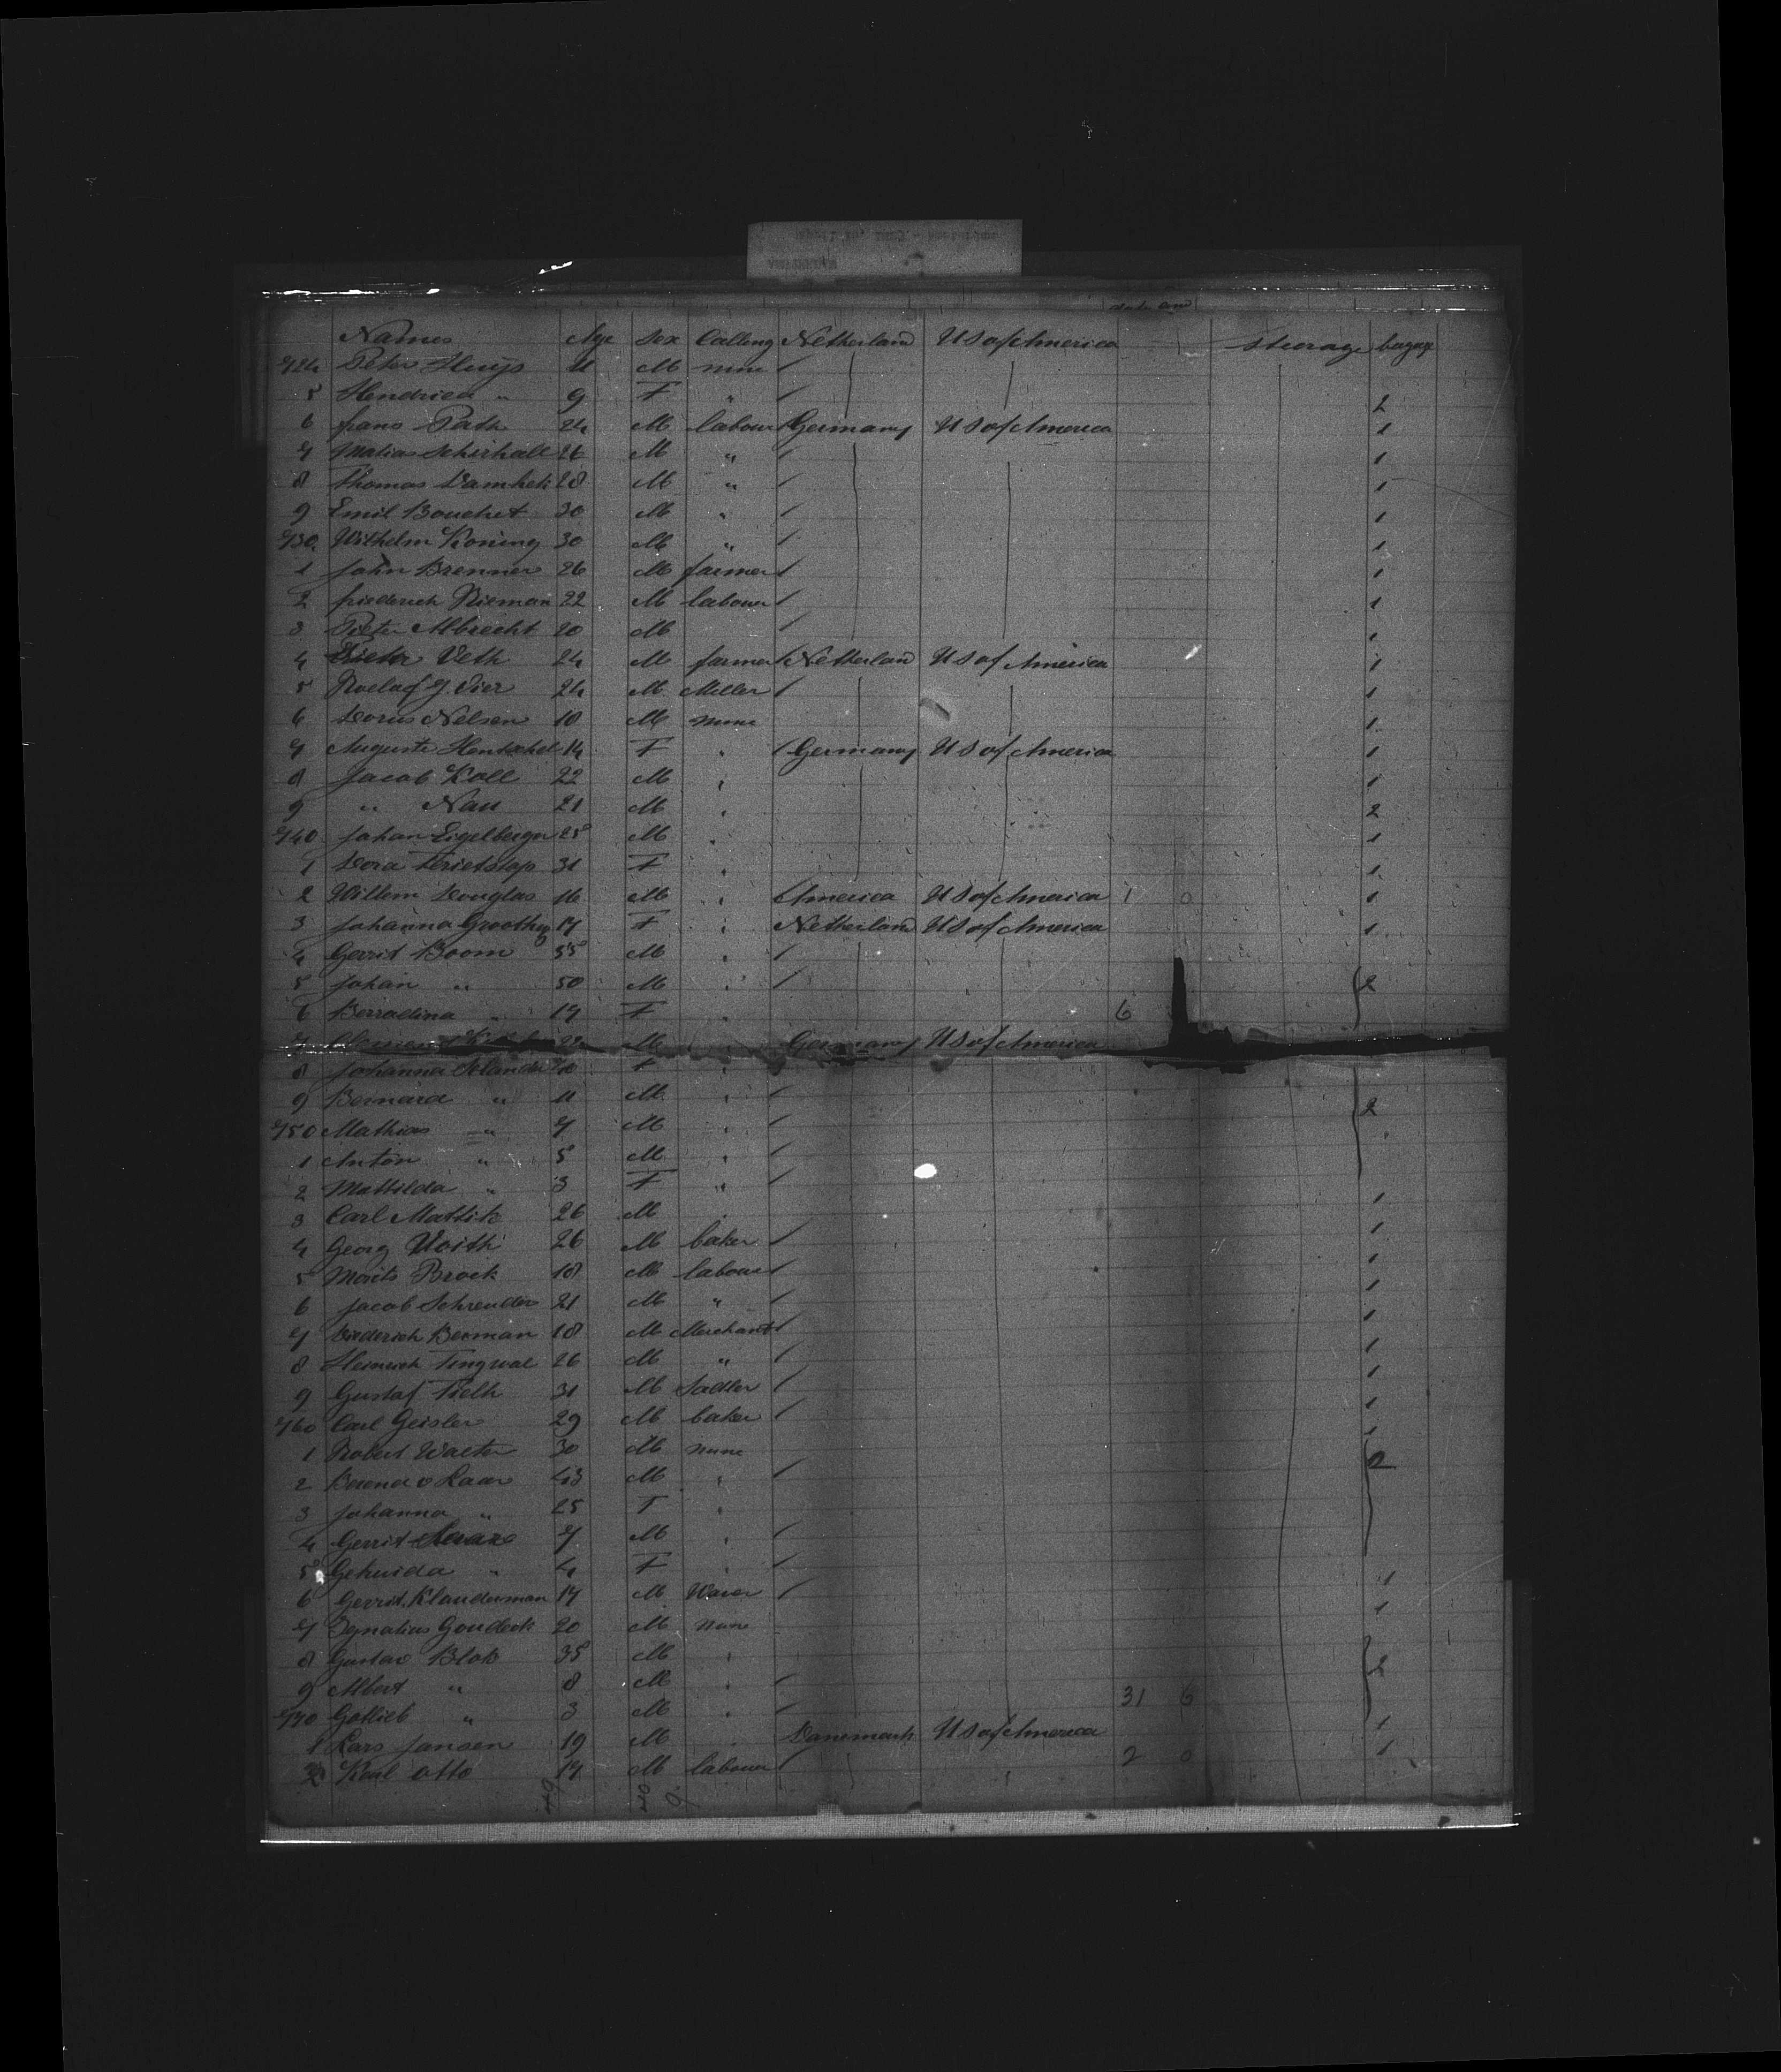 Names Age Sex Calling Netherland US of America Steerage bagage
724 Peter Huijs 11 M none
5 Hendrica " 9 F " 2
6 frans Path 24 M labour Germany US of America 1
7 Matias Schirhall 26 M " 1
8 Thomas 28 M " 1
9 Emil Bouchet 30 M " 1
730 Wilhelm Koning 30 M " 1
1 John Brenner 26 M farmer 1
2 friederich Nieman 22 M labour 1
3 Pieter Albrecht 20 M 1
4 Pieter Veth 24 M farmer Netherland US of America 1
5 Roelof J. Vier 24 M Miller 1
6 Dorus Nelsen 10 M none 1
7 Auguste Hentschel 14 F " Germany US of America 1
8 Jacob Koll 22 M " 1
9 " Nau 21 M " 2
740 Johan Eigelberger 25 M " 1
1 Dora 31 F " 1
2 Willem Douglas 16 M " America US of America 1 0 1
3 Johanna 17 F " Netherland US of America 1
4 Gerrit Boom 55 M "
5 Johan " 50 M " 2
6 Berradina " 19 F " 6
M Germany US of America
8 Johanna F "
9 Bernard " 11 M " 2
750 Mathias " 7 M "
1 Anton " 5 M "
2 Mathilda " 3 F "
3 Carl Mattik 26 M 1
4 Georg Voith 26 M baker 1
5 Morits Brock 18 M labour 1
6 Jacob Schreuder 21 M " 1
7 Diederich Beoman 18 M Merchant 1
8 Heinrich Tingwal 26 M " 1
9 Gustaf Tielh 31 M Sadler 1
760 Carl Geisler 29 M baker 1
1 Robert Walter 30 M none 1
2 Berend v Laar 43 M " 2
3 Johanna " 25 F "
4 Gerrit 7 M "
5 " 4 F "
6 Gerrit Klanderman 17 M 1
7 Ignatius Goudeck 20 M none 1
8 Gustav Blok 35 M " 2
9 Albert " 8 M " 31 6
770 Gottlieb " 3 M "
1 Lars Jansen 19 M " Danemark US of America 1
2 Karl Otto 17 M labour 2 0 1